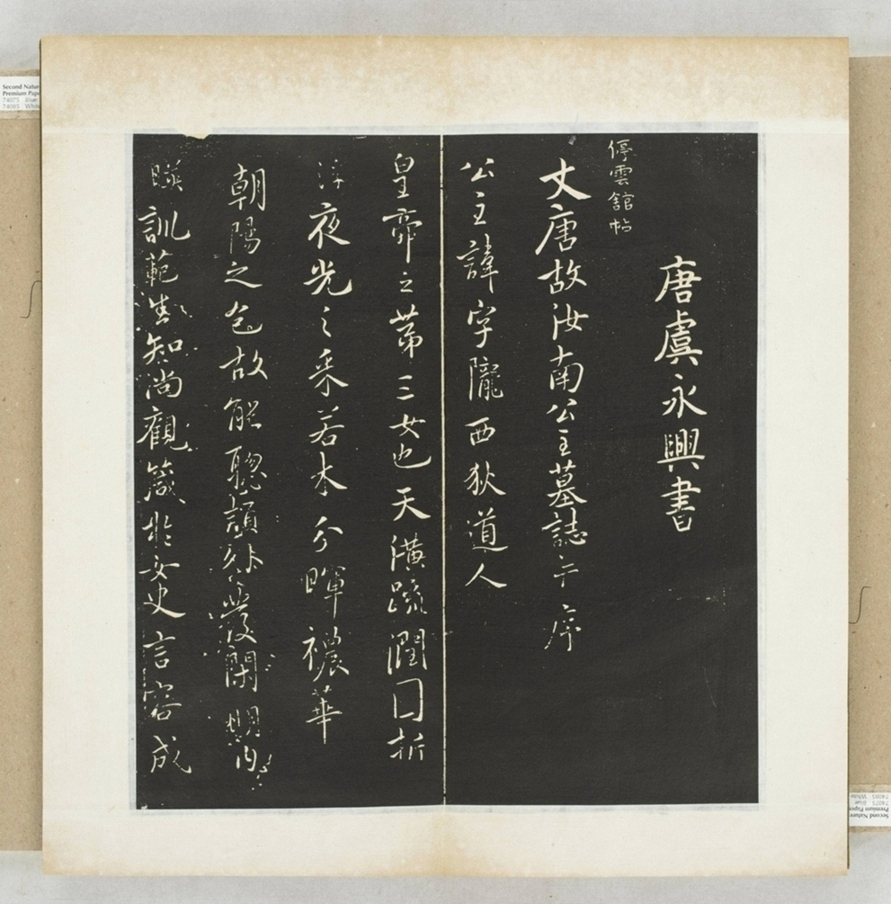 唐虞永興書
停雲館帖
大唐故汝南公主墓誌并序
公主諱字隴西狄道人
皇帝之第三女也天潢疏潤圓折
浮夜光之采若木分暉襛華
朝陽之色故能聰穎外發閑明內
暎訓範生知尚觀箴於女史言容成
Second Natur
Premium Pape